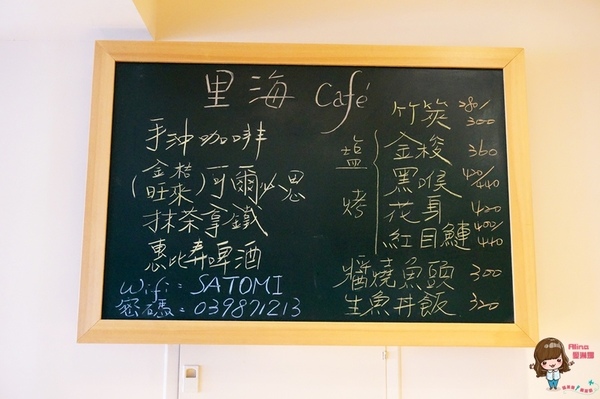 里海 Café
手沖咖啡
(金桔 旺來)可爾必思
抹茶拿鐵
惠比寿啤酒
Wifi: SATOMI
密碼: 039871213
竹筴 280/300
塩烤
金梭 360
黑喉 420/440
花身 420
紅目鰱 400/440
醬燒魚頭 300
生魚丼飯 320
Alina
愛琳娜